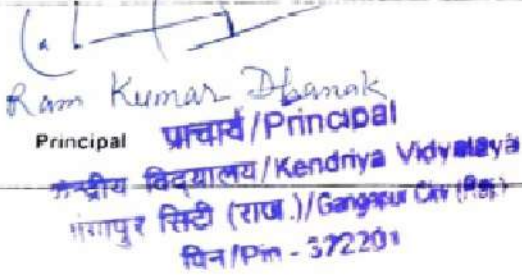 Ram Kumar Dhanak
Principal प्राचार्य/Principal
केन्द्रीय विद्यालय/Kendriya Vidyalaya
गंगापुर सिटी (राज.)/Gangapur City (Raj.)
पिन/Pin - 322201